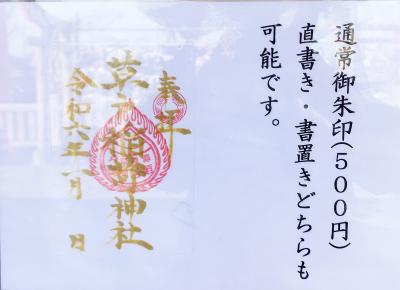 通常御朱印(500円)
直書き・書置きどちらも
可能です。
奉拝
神社
令和六年一月 日